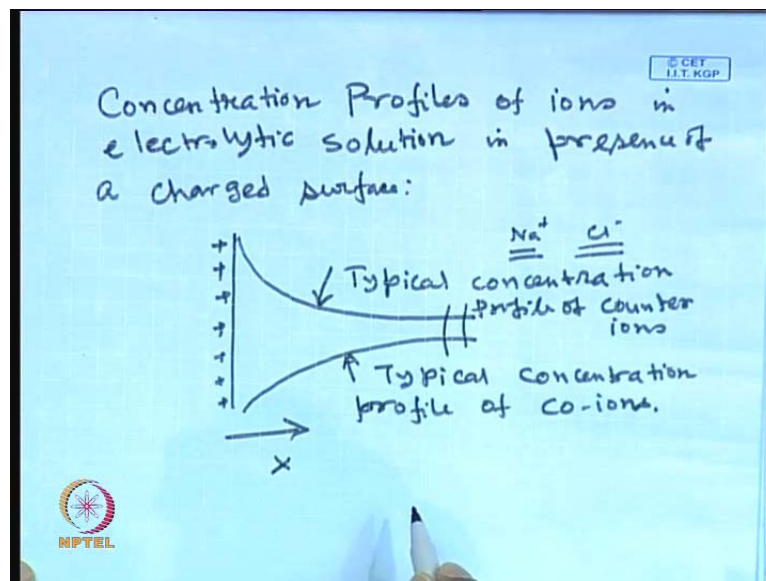 © CET
I.I.T. KGP
Concentration Profiles of ions in
electrolytic solution in presence of
a charged surface:
Na⁺ Cl⁻
+
+
+
+
+
+
+
Typical concentration
profile of counter
ions
Typical concentration
profile of co-ions.
x
NPTEL